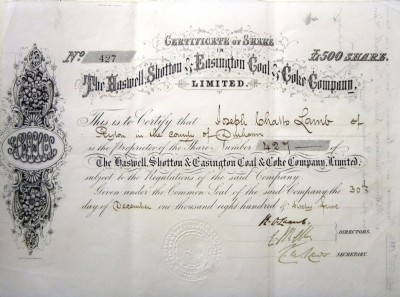 CERTIFICATE OF SHARE
IN
No. 427 £500 SHARE.
The Haswell, Shotton & Easington Coal & Coke Company,
LIMITED.
This is to Certify that Joseph Chas Lamb of
Ryton in the County of Durham
is the Proprietor of the Share Number 427 of
The Haswell, Shotton & Easington Coal & Coke Company, Limited,
subject to the Regulations of the said Company.
Given under the Common Seal of the said Company the 30th
day of December one thousand eight hundred &
DIRECTORS.
SECRETARY.